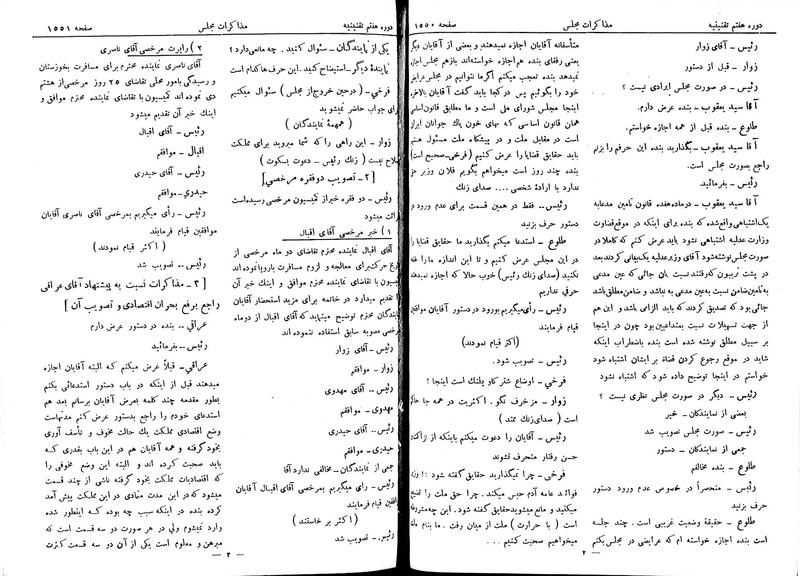 دوره هفتم تقنینیه
مذاکرات مجلس
صفحه ۱۵۵۰
رئیس ـ آقای زوار
زوار ـ قبل از دستور
رئیس ـ در صورت مجلس ایرادی نیست ؟
آقا سید یعقوب ـ بنده عرض دارم.
طلوع ـ بنده قبل از همه اجازه خواستم.
آقا سید یعقوب ـ بگذارید بنده این حرفم را بزنم
راجع بصورت مجلس است.
رئیس ـ بفرمائید.
آقا سید یعقوب ـ در ماده هفده قانون تأمین مدعابه
یک اشتباهی واقع شده که بنده برای اینکه در موقع قضاوت
وزارت عدلیه اشتباهی نشود باید عرض کنم که کاملا در
صورت مجلس نوشته شود آقای وزیر عدلیه یک بیاناتی کردند بعد
در پشت تریبون که گفتند نسبت بآن جائی که عین مدعی
به تأمین ضامن نسبت به عین مدعی به نباشد و ضامن مطلق باشد
جائی بود که تصدیق کردند که باید الزامی باشد و این هم
از جهت تسهیلات نسبت بمتداعیین بود چون در اینجا
بر سبیل مطلق نوشته شده است بنده باضطراب اینکه
شاید در موقع رجوع کردن قضاة بر ایشان اشتباه شود
خواستم در اینجا توضیح داده شود که اشتباه نشود
رئیس ـ دیگر در صورت مجلس نظری نیست ؟
بعضی از نمایندگان ـ خیر
رئیس ـ صورت مجلس تصویب شد
جمعی از نمایندگان ـ دستور
طلوع ـ بنده مخالفم
رئیس ـ منحصراً در خصوص عدم ورود دستور
حرف بزنید
طلوع ـ حقیقة وضعیت غریبی است. چند جلسه
است بنده اجازه خواسته ام که عرایضی در مجلس بکنم
متأسفانه آقایان اجازه نمیدهند و بعضی از آقایان دیگر
یعنی رفقای بنده هم اجازه خواسته‌اند بازهم مجلس اجازه
نمیدهد بنده تعجب میکنم اگر ما نتوانیم در مجلس عرایض
خود را بگوئیم پس در کجا باید گفت آقایان بالاخره
اینجا مجلس شورای ملی است و ما مطابق قانون اساسی
همان قانون اساسی که بهای خون پاک جوانان ایران
است در مقابل ملت و در پیشگاه ملت مسئول هستیم
باید حقایق قضایا را عرض کنیم (فرخی ـ صحیح است)
بنده چند روز است میخواهم بگویم فلان وزیر حق
ندارد با ارادۀ شخصی .... صدای زنگ
رئیس ـ فقط در همین قسمت برای عدم ورود در
دستور حرف بزنید
طلوع ـ استدعا میکنم بگذارید ما حقایق قضایا را
در این مجلس عرض کنیم و تا این اندازه ما را خفه
نکنید (صدای زنگ رئیس) خوب حالا که اجازه نمیدهند
حرفی نداریم
رئیس ـ رأی میگیریم بورود در دستور آقایان موافقین
قیام فرمایند
(اکثر قیام نمودند)
رئیس ـ تصویب شد.
فرخی ـ اوضاع شتر گاو پلنگ است اینجا !
زوار ـ مزخرف نگو . اکثریت در همه جا حاکم
است ( صدای زنگ ممتد )
رئیس ـ آقایان را دعوت میکنم باینکه از نزاکت
حسن رفتار منحرف نشوند
فرخی ـ چرا نمیگذارید حقایق گفته شود
فوائد عامه آدم حبس میکند. چرا حق ملت را تضییع
میکنید و مانع میشوید حقایق گفته شود. این چه مشروطه
است ( با حرارت ) ملت از میان رفت . ما بنام ملت
میخواهیم صحبت کنیم ...
ـ ۲ ـ
دوره هفتم تقنینیه
مذاکرات مجلس
صفحه ۱۵۵۱
یکی از نمایندگان ـ سئوال کنید . چه مانعی دارد ؟
نمایندۀ دیگر ـ استیضاح کنید . این حرف ها کدام است
فرخی ـ ( در حین خروج از مجلس ) سئوال میکنیم
برای جواب حاضر نمیشوید
( همهمۀ نمایندگان )
زوار ـ این راهی را که شما میروید برای مملکت
صلاح نیست ( زنگ رئیس ـ دعوت بسکوت )
[ ۲ ـ تصویب دو فقره مرخصی ]
رئیس ـ دو فقره خبر از کمیسیون مرخصی رسیده است
قرائت میشود
۱ ) خبر مرخصی آقای اقبال
آقای اقبال نماینده محترم تقاضای دو ماه مرخصی از
تاریخ حرکت برای معالجه و لزوم مسافرت باروپا نموده اند
کمیسیون با تقاضای نماینده محترم موافق و اینک خبر آن
را تقدیم میدارد در خاتمه برای مزید استحضار آقایان
نمایندگان محترم توضیح مینماید که آقای اقبال از دو ماه
مرخصی مصوبه سابق استفاده ننموده اند
رئیس ـ آقای زوار
زوار ـ موافقم
رئیس ـ آقای مهدوی
مهدوی ـ موافقم
رئیس ـ آقای حیدری
جمعی از نمایندگان ـ مخالفی ندارد آقا
رئیس ـ رأی میگیریم بمرخصی آقای اقبال آقایان
موافقین قیام فرمایند
( اکثر بر خاستند )
رئیس ـ تصویب شد
۲ ) راپرت مرخصی آقای ناصری
آقای ناصری نماینده محترم برای مسافرت بخوزستان
و رسیدگی بامور محلی تقاضای ۲۵ روز مرخصی از هشتم
دی نموده اند کمیسیون با تقاضای نماینده محترم موافق و
اینک خبر آن تقدیم میشود
رئیس ـ آقای اقبال
اقبال ـ موافقم
رئیس ـ آقای حیدری
حیدری ـ موافقم
رئیس ـ رأی میگیریم بمرخصی آقای ناصری آقایان
موافقین قیام فرمایند
( اکثر قیام نمودند )
رئیس ـ تصویب شد
[ ۳ ـ مذاکرات نسبت به پیشنهاد آقای عراقی
راجع برفع بحران اقتصادی و تصویب آن ]
عراقی ـ بنده در دستور عرض دارم
رئیس ـ بفرمائید
عراقی ـ قبلا عرض میکنم که البته آقایان اجازه
میدهند قبل از اینکه در باب دستور استدعائی بکنم
بطور مقدمه چند کلمه بعرض آقایان برسانم بعد هم
استدعای خودم را راجع بدستور عرض کنم مدتهاست
وضع اقتصادی مملکت یک حالت مخوف و تأسف آوری
بخود گرفته و همه آقایان هم در این باب بقدری که
باید صحبت کرده اند و البته این وضع مخوفی را
که اقتصادیات مملکت بخود گرفته ناشی از چند قسمت
میشود که در این مدت متمادی در این مملکت پیش آمد
کرده بنده در اینکه سبب چه بوده که حالا بحث
وارد نمیشوم ولی در هر صورت دو سه قسمت است که
مبرهن و معلوم است یکی از آن دو سه قسمت کثرت
ـ ۳ ـ